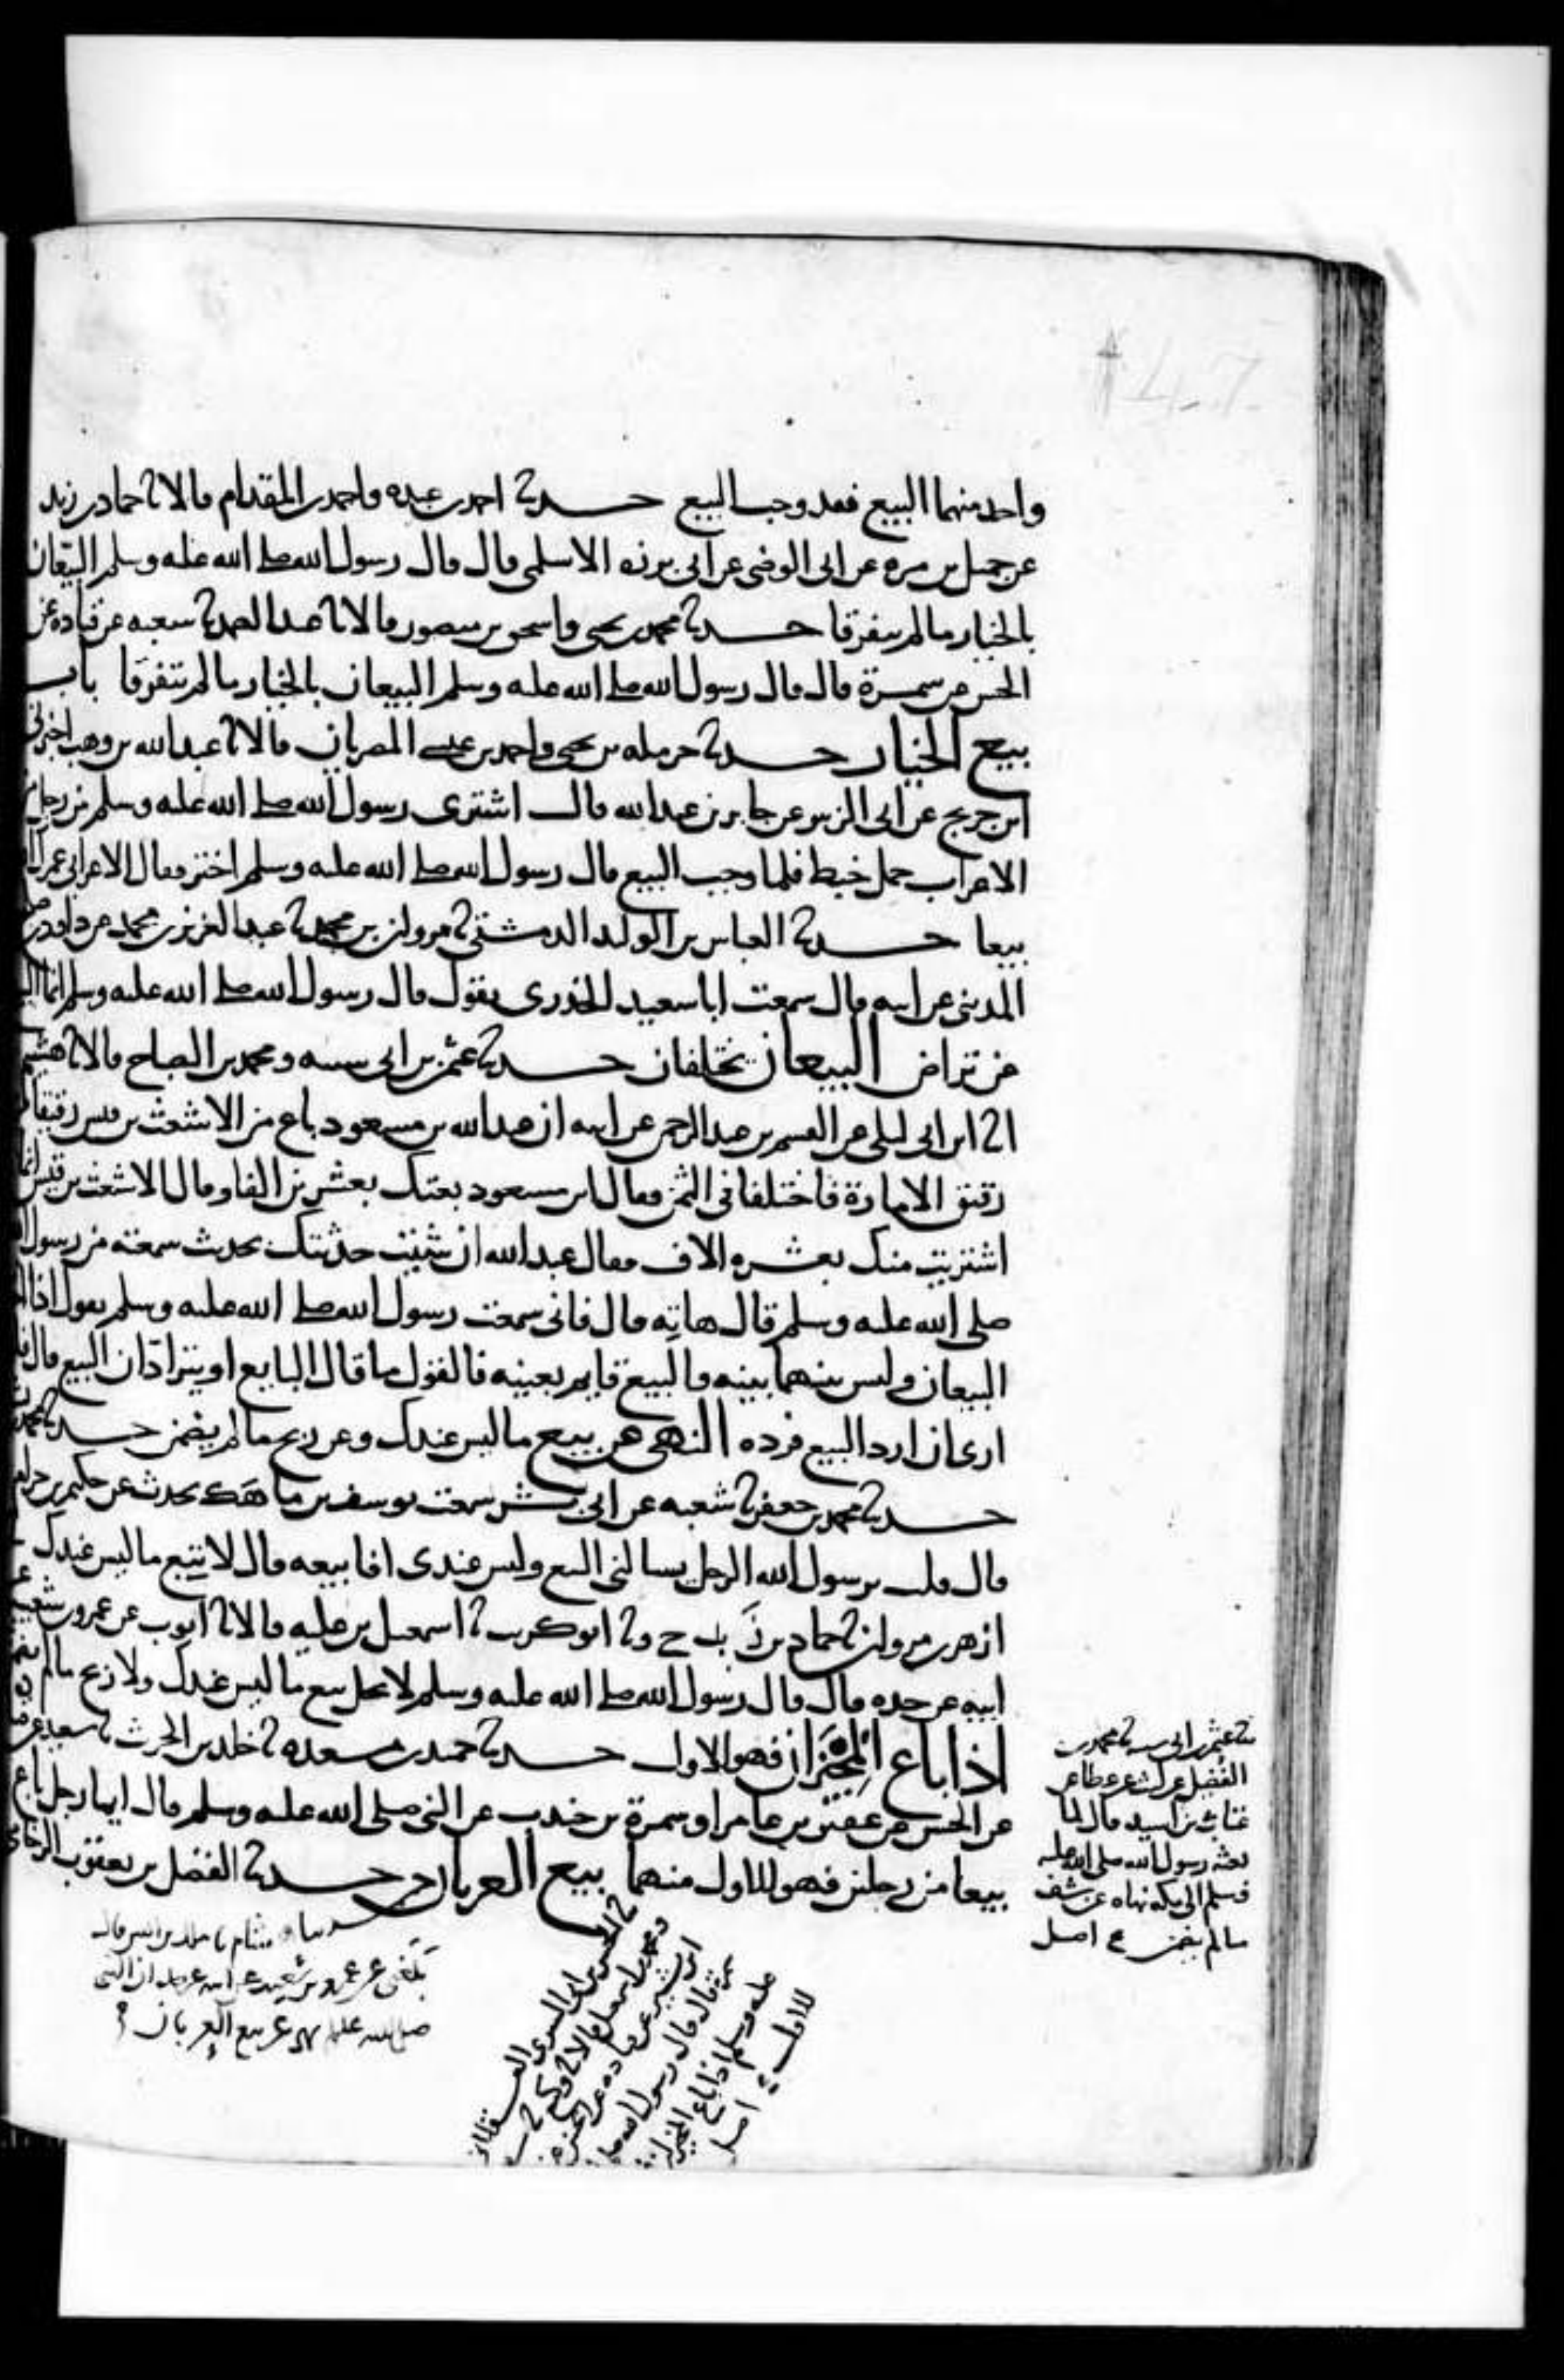 واحد منهما البيع فقد وجب البيع حدثنا احمد بن عبده واحمد بن المقدام قالا ثنا حماد بن زيد
عن جميل بن مره عن ابى الوضى عن ابى برزه الاسلمى قال قال رسول الله صلى الله عليه وسلم البيّعان
بالخيار ما لم يتفرقا حدثنا محمد بن يحيى واسحق بن منصور قالا ثنا عبد الصمد ثنا شعبه عن قتاده عن
الحسن عن سمرة قال قال رسول الله صلى الله عليه وسلم البيعان بالخيار ما لم يتفرقا باب
بيع الخيار حدثنا حرمله بن يحيى واحمد بن عيسى المصريان قالا ثنا عبد الله بن وهب اخبرنى
ابن جريج عن ابى الزبير عن جابر بن عبد الله قال اشترى رسول الله صلى الله عليه وسلم من رجل من
الاعراب حمل خبط فلما وجب البيع قال رسول الله صلى الله عليه وسلم اختر فقال الاعرابى عمرك الله
بيعا حدثنا العباس بن الوليد الدمشقى ثنا مرون بن محمد ثنا عبد العزيز بن محمد عن داود بن
المدينى عن ابيه قال سمعت ابا سعيد الخدرى يقول قال رسول الله صلى الله عليه وسلم انما
عن تراض البيعان يختلفان حدثنا عثمن بن ابى شيبه ومحمد بن الصباح قالا ثنا هشيم
انا ابن ابى ليلى عن القسم بن عبد الرحمن عن ابيه ان عبد الله بن مسعود باع من الاشعث بن قيس رقيقا
رقيق الامارة فاختلفا فى الثمن فقال ابن مسعود بعتك بعشرين الفا وقال الاشعث بن قيس انما
اشتريت منك بعشره الاف فقال عبد الله ان شيت حدثتك بحديث سمعته من رسول
صلى الله عليه وسلم قال هاتِه قال فانى سمعت رسول الله صلى الله عليه وسلم يقول اذا
البيعان وليس بينهما بينه والبيع قايم بعينه فالقول ما قال البايع او يترادّان البيع قال
ارى ان ارد البيع فرده النهى عن بيع ما ليس عندك وعن ربح ما لم يضمن حدثنا محمد
حدثنا محمد بن جعفر ثنا شعبه عن ابى بشر سمعت يوسف بن ماهك يحدث عن حكيم بن حزام
قال قلت يرسول الله الرجل يسالنى البيع وليس عندى افابيعه قال لا تبع ما ليس عندك
ازهر بن مرون ثنا حماد بن زيد ح وثنا ابو كريب ثنا اسمعيل بن عليه قالا ثنا ايوب عن عمرو بن شعيب عن
ابيه عن جده قال قال رسول الله صلى الله عليه وسلم لا يحل بيع ما ليس عندك ولا ربح ما لم يضمن
اذا باع المجيزان فهو للاول حدثنا حميد بن مسعده ثنا خلد بن الحرث ثنا سعيد عن
عن الحسن عن عقبة بن عامر او سمرة بن جندب عن النبى صلى الله عليه وسلم قال ايما رجل باع
بيعا من رجلين فهو للاول منهما بيع العربان حدثنا الفضل بن يعقوب الرخامى
ثنا عثمن بن ابى شيبه ثنا محمد بن
الفضيل عن ليث عن عطا عن
عتاب بن اسيد قال لما
بعثه رسول الله صلى الله عليه
وسلم الى مكه نهاه عن شف
ما لم يضمن اصل
ثنا الحسين بن ابى السرى العسقلانى
ومحمد بن اسمعيل قالا ثنا وكيع ثنا
ابن بشير عن قتاده عن الحسن عن
سمرة قال قال رسول الله صلى الله
عليه وسلم اذا باع المجيزان
للاول اصل
حدثنا هشام ثنا ملك بن انس قال
بلغنى عن عمرو بن شعيب عن ابيه عن جده ان النبى
صلى الله عليه نهى عن بيع العربان